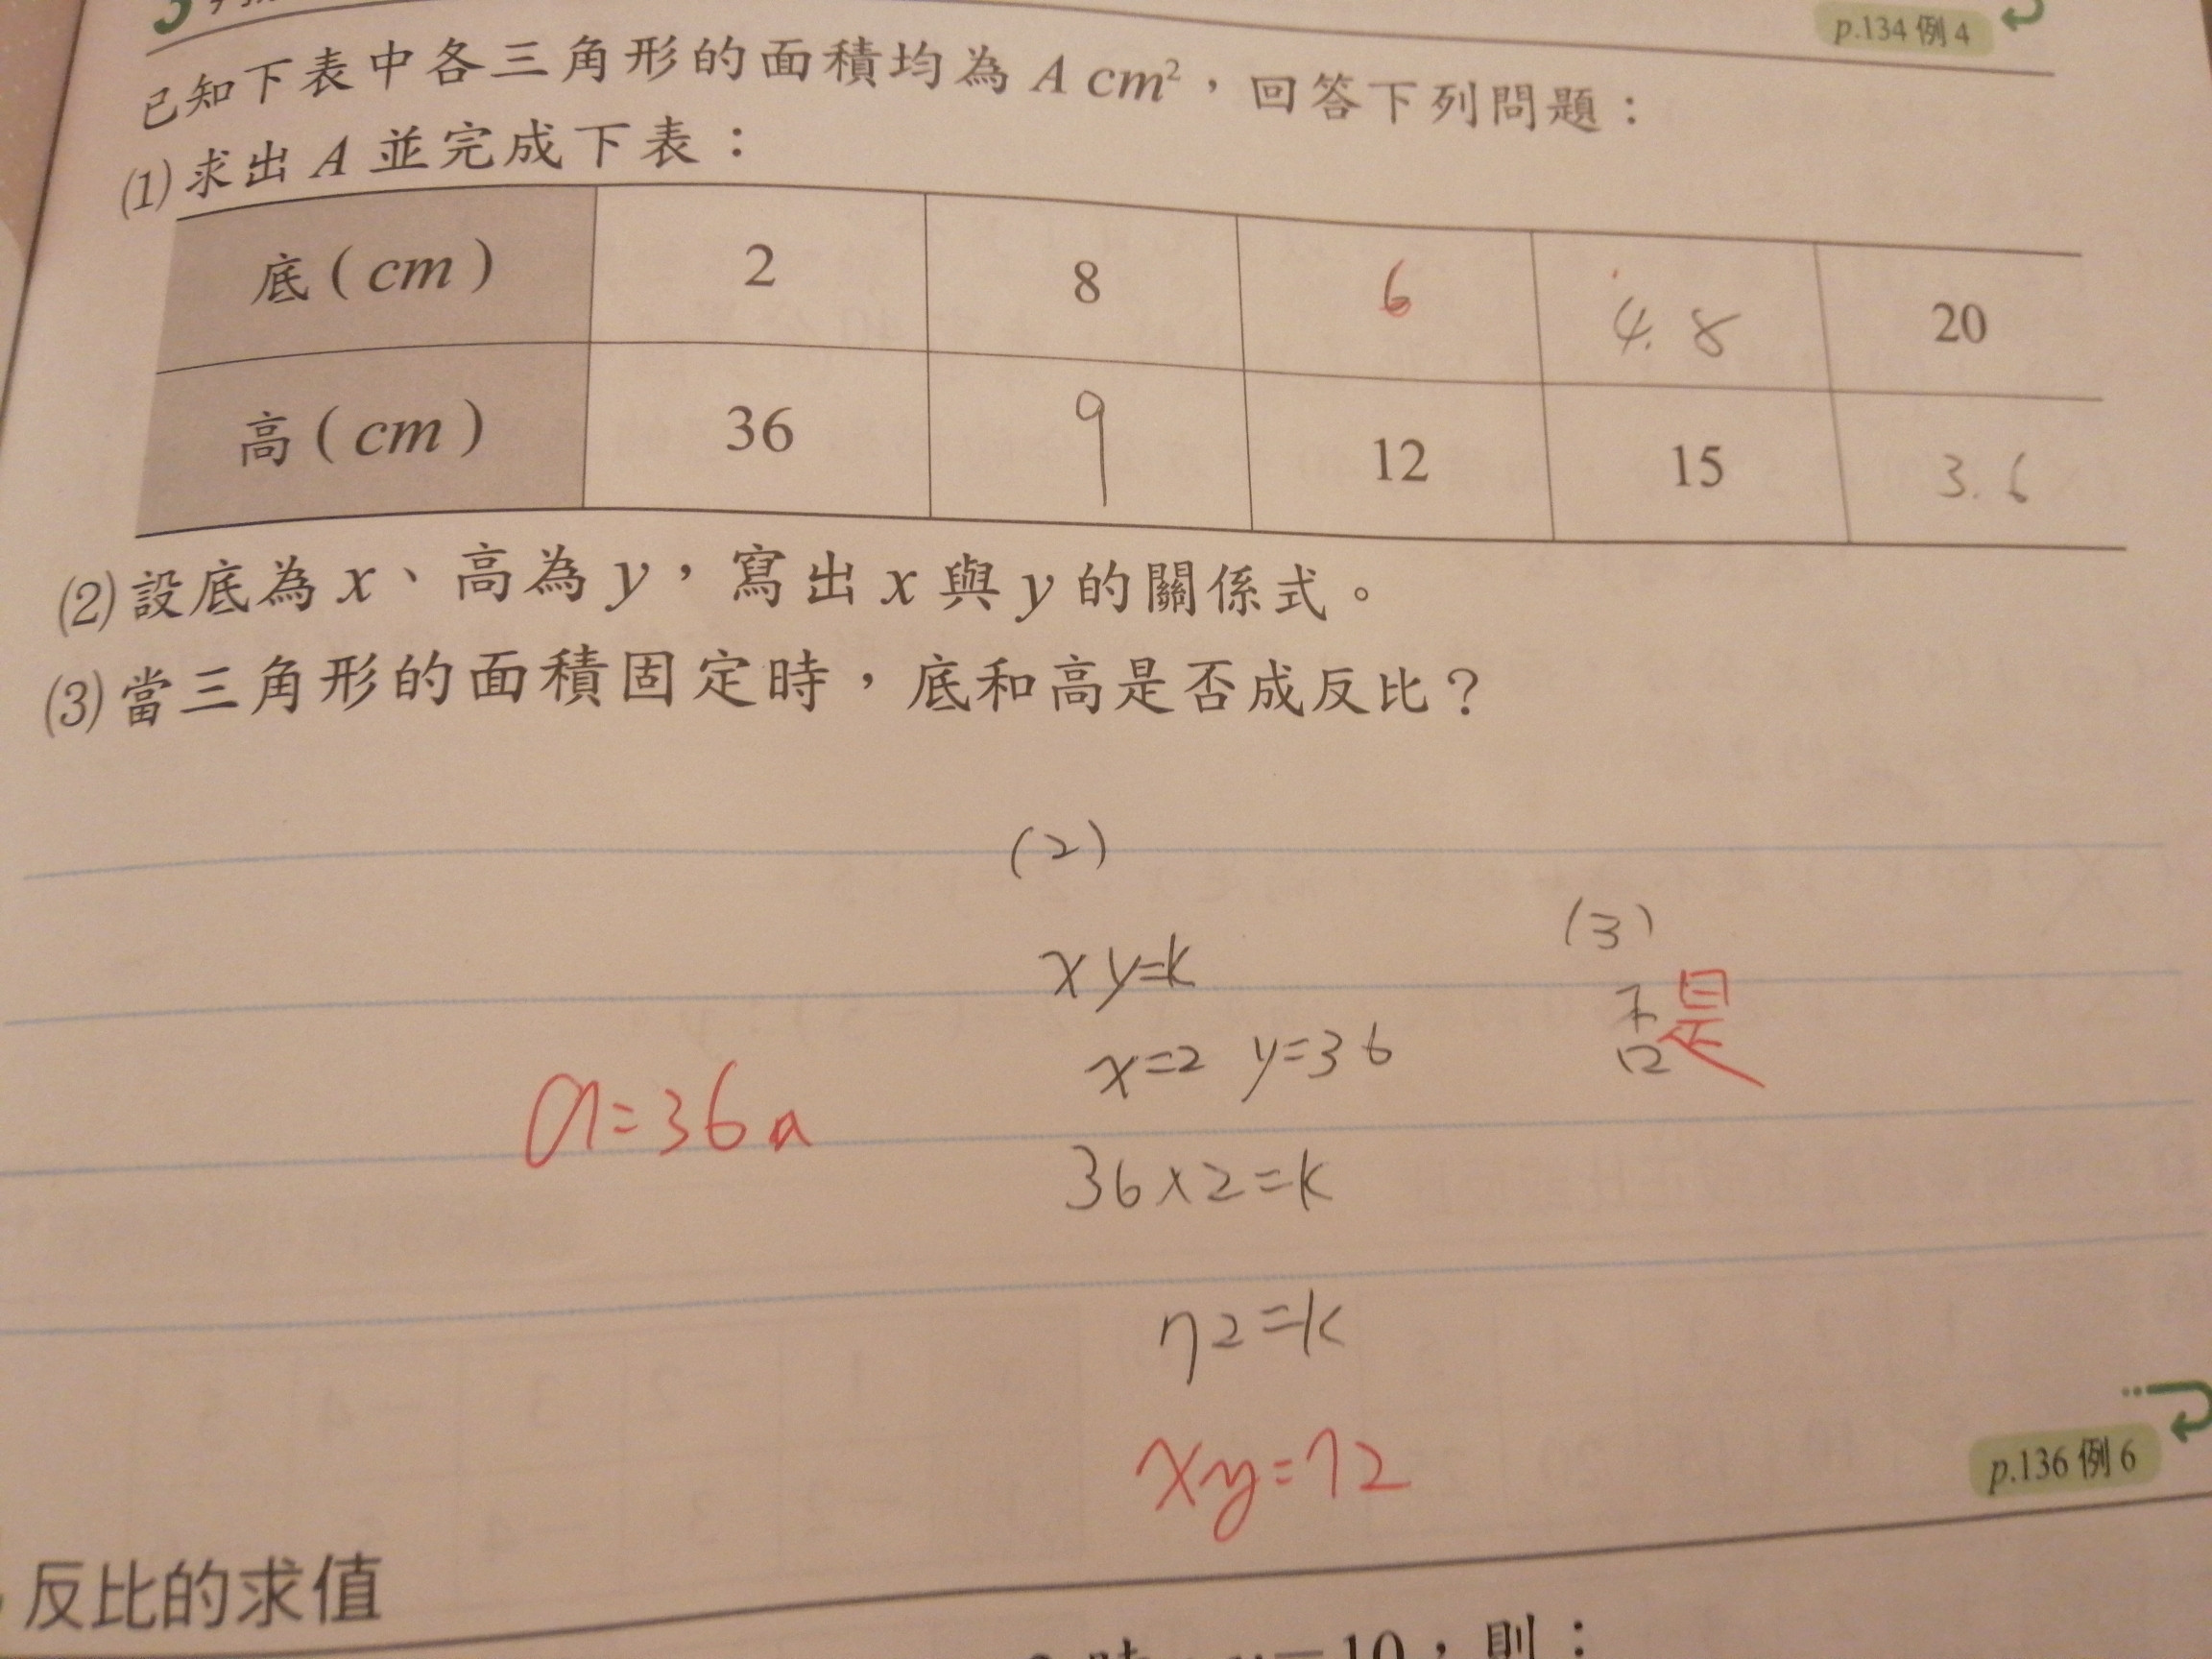 p.134 例 4
已知下表中各三角形的面積均為 A cm²，回答下列問題：
(1) 求出 A 並完成下表：
底 ( cm ) 2 8 6 4.8 20
高 ( cm ) 36 9 12 15 3.6
(2) 設底為 x、高為 y，寫出 x 與 y 的關係式。
(3) 當三角形的面積固定時，底和高是否成反比？
(2)
(3)
xy=k
否是
x=2 y=36
a=36
36×2=k
72=k
xy=72
p.136 例 6
反比的求值
=10，則：